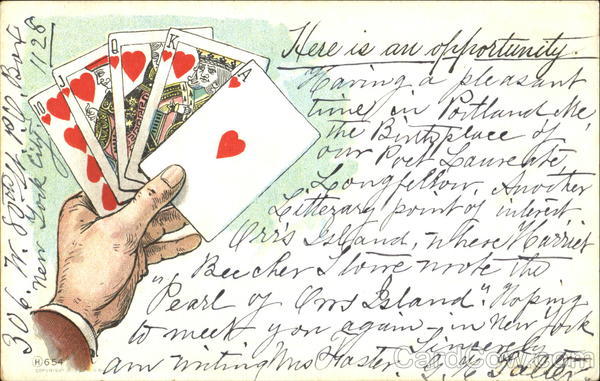 Here is an opportunity.
Having a pleasant
time in Portland Me,
the Birthplace of
our Poet Laureate,
Longfellow. Another
Litterary point of interest,
Orr's Island, where Harriet
Beecher Stowe wrote the
"Pearl of Orrs Island". Hoping
to meet you again in New York
am writing Sincerely
306. W. New York City. Box 1128
10
J
Q
K
A
H 654
CardCow.com